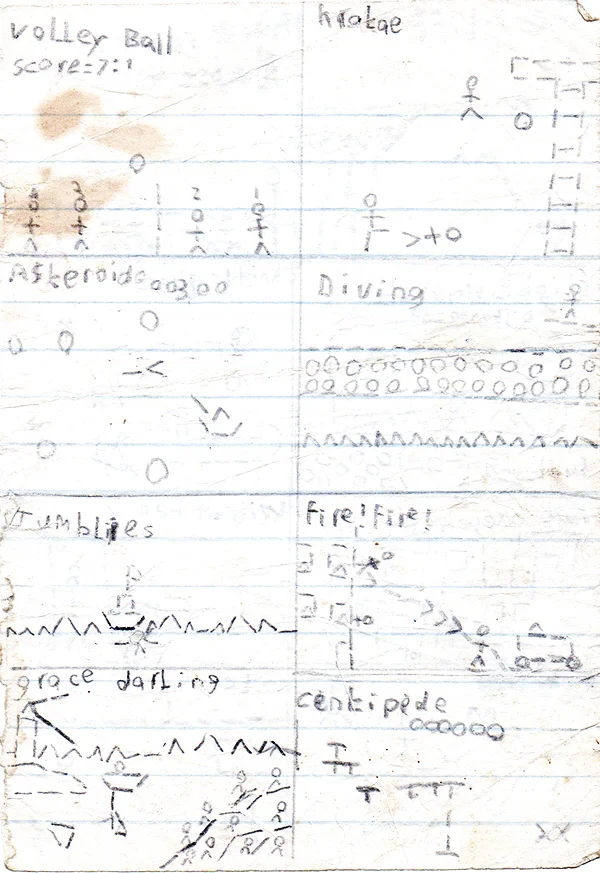 volley Ball
score=7:1
krakae
2 1
Asteroids
Diving
Jumblies
Fire! Fire!
grace darling
centipede